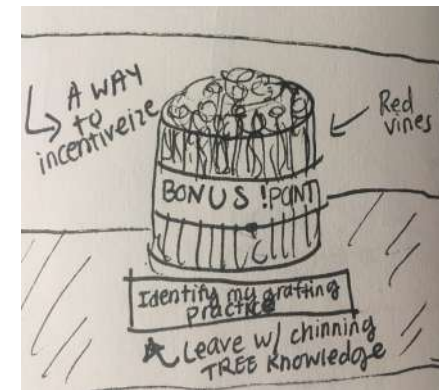 A WAY
to
incentiveize
Red
vines
BONUS !POINT
Identify my grafting
practice
Leave w/ chinning
TREE Knowledge